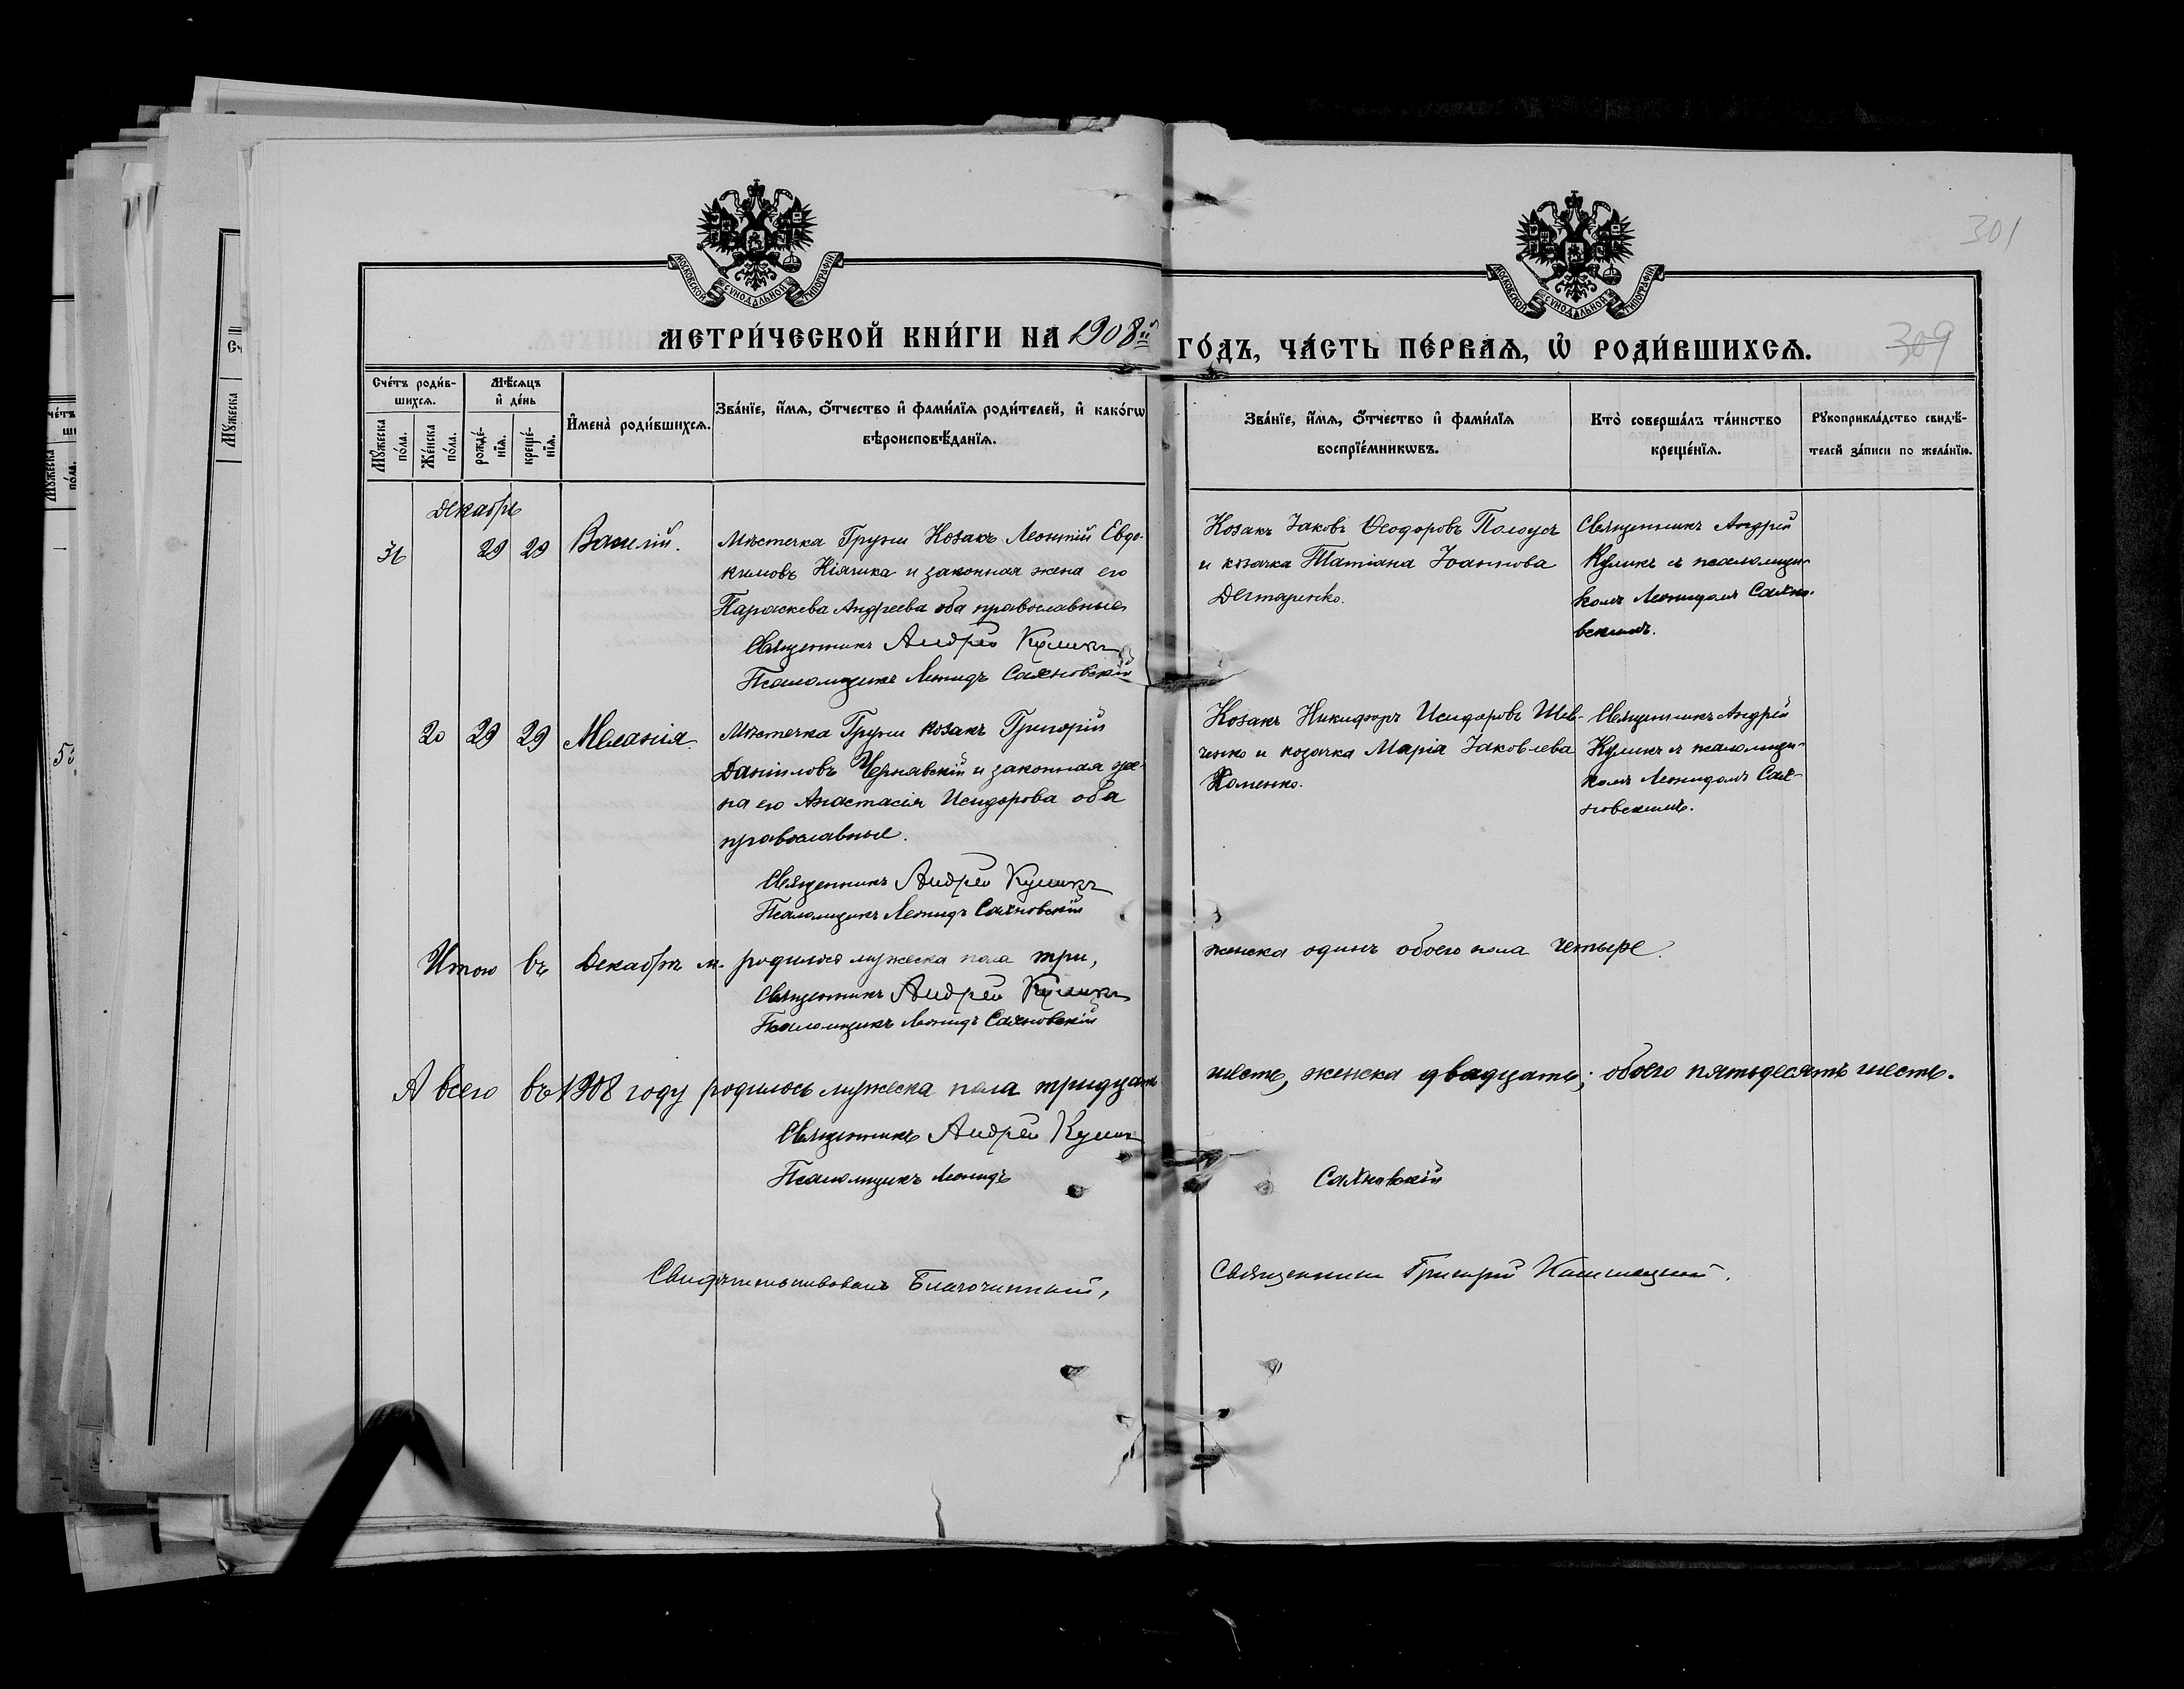 МОСКОВСКОЙ СѴНОДАЛЬНОЙ ТИПОГРАФІИ
МОСКОВСКОЙ СѴНОДАЛЬНОЙ ТИПОГРАФІИ
301
МЕТРИ́ЧЕСКОЙ КНИ́ГИ НА 1908й ГО́ДЪ, ЧА́СТЬ ПЕ́РВАѦ, Ѡ҆ РОДИ́ВШИХСѦ.
309
Сче́тъ роди́в-
шихсѧ.
Мѣ́сѧцъ
и҆ де́нь
Мꙋ́жеска
по́ла.
Же́нска
по́ла.
рожде́-
нїѧ.
креще́-
нїѧ.
И҆мена̀ роди́вшихсѧ.
Зва́нїе, и҆́мѧ, ѻ҆́тчество и҆ фами́лїѧ роди́телей, и҆ како́гѡ
вѣроисповѣ́данїѧ.
Зва́нїе, и҆́мѧ, ѻ҆́тчество и҆ фами́лїѧ
воспрїе́мникѡвъ.
Кто̀ соверша́лъ та́инство
креще́нїѧ.
Рꙋкоприкла́дство свидѣ́-
телей за́писи по жела́нїю.
Декабрь
36 29 29 Василій.
Мѣстечка Груни Козакъ Леонтій Евдо-
кимовъ Кіячика и законная жена его
Параскева Андреева оба православные
Священникъ Андрей Куликъ
Псаломщикъ Леонидъ Сахновскій
Козакъ Іаковъ Ѳеодоровъ Полоусъ
и козачка Татіана Іоаннова
Дегтяренко.
Священникъ Андрей
Куликъ съ псаломщи-
комъ Леонидомъ Сахно-
вскимъ.
20 29 29 Меланія.
Мѣстечка Груни козакъ Григорій
Даніиловъ Чернявскій и законная же-
на его Анастасія Исидорова оба
православные.
Священникъ Андрей Куликъ
Псаломщикъ Леонидъ Сахновскій
Козакъ Никифоръ Исидоровъ Шев-
ченко и козачка Марія Іаковлева
Хоменко.
Священникъ Андрей
Куликъ съ псаломщи-
комъ Леонидомъ Сах-
новскимъ.
Итого въ Декабрѣ м. родилось мужеска пола три, женска одинъ обоего пола четыре.
Священникъ Андрей Куликъ
Псаломщикъ Леонидъ Сахновскій
А всего въ 1908 году родилось мужеска пола тридцать шесть, женска двадцать; обоего пятьдесятъ шесть.
Священникъ Андрей Куликъ
Псаломщикъ Леонидъ Сахновскій
Свидѣтельствовалъ Благочинный, Священникъ Григорій